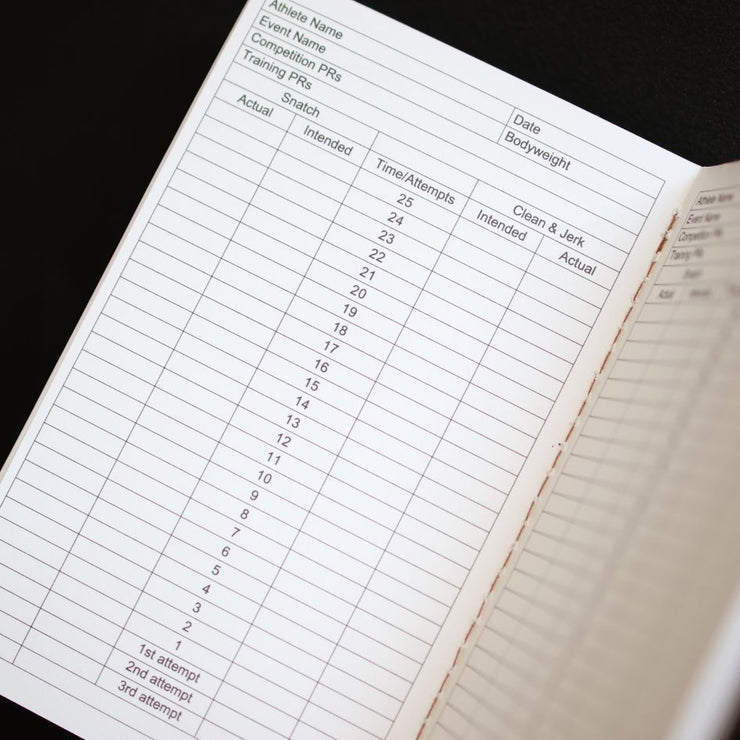 Athlete Name
Event Name
Competition PRs
Training PRs
Date
Bodyweight
Snatch
Clean & Jerk
Actual Intended Time/Attempts Intended Actual
25
24
23
22
21
20
19
18
17
16
15
14
13
12
11
10
9
8
7
6
5
4
3
2
1
1st attempt
2nd attempt
3rd attempt
Athlete Name
Event Name
Competition PRs
Training PRs
Snatch
Actual